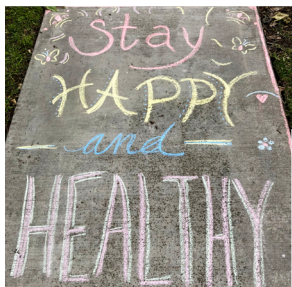 Stay
HAPPY
and
HEALTHY